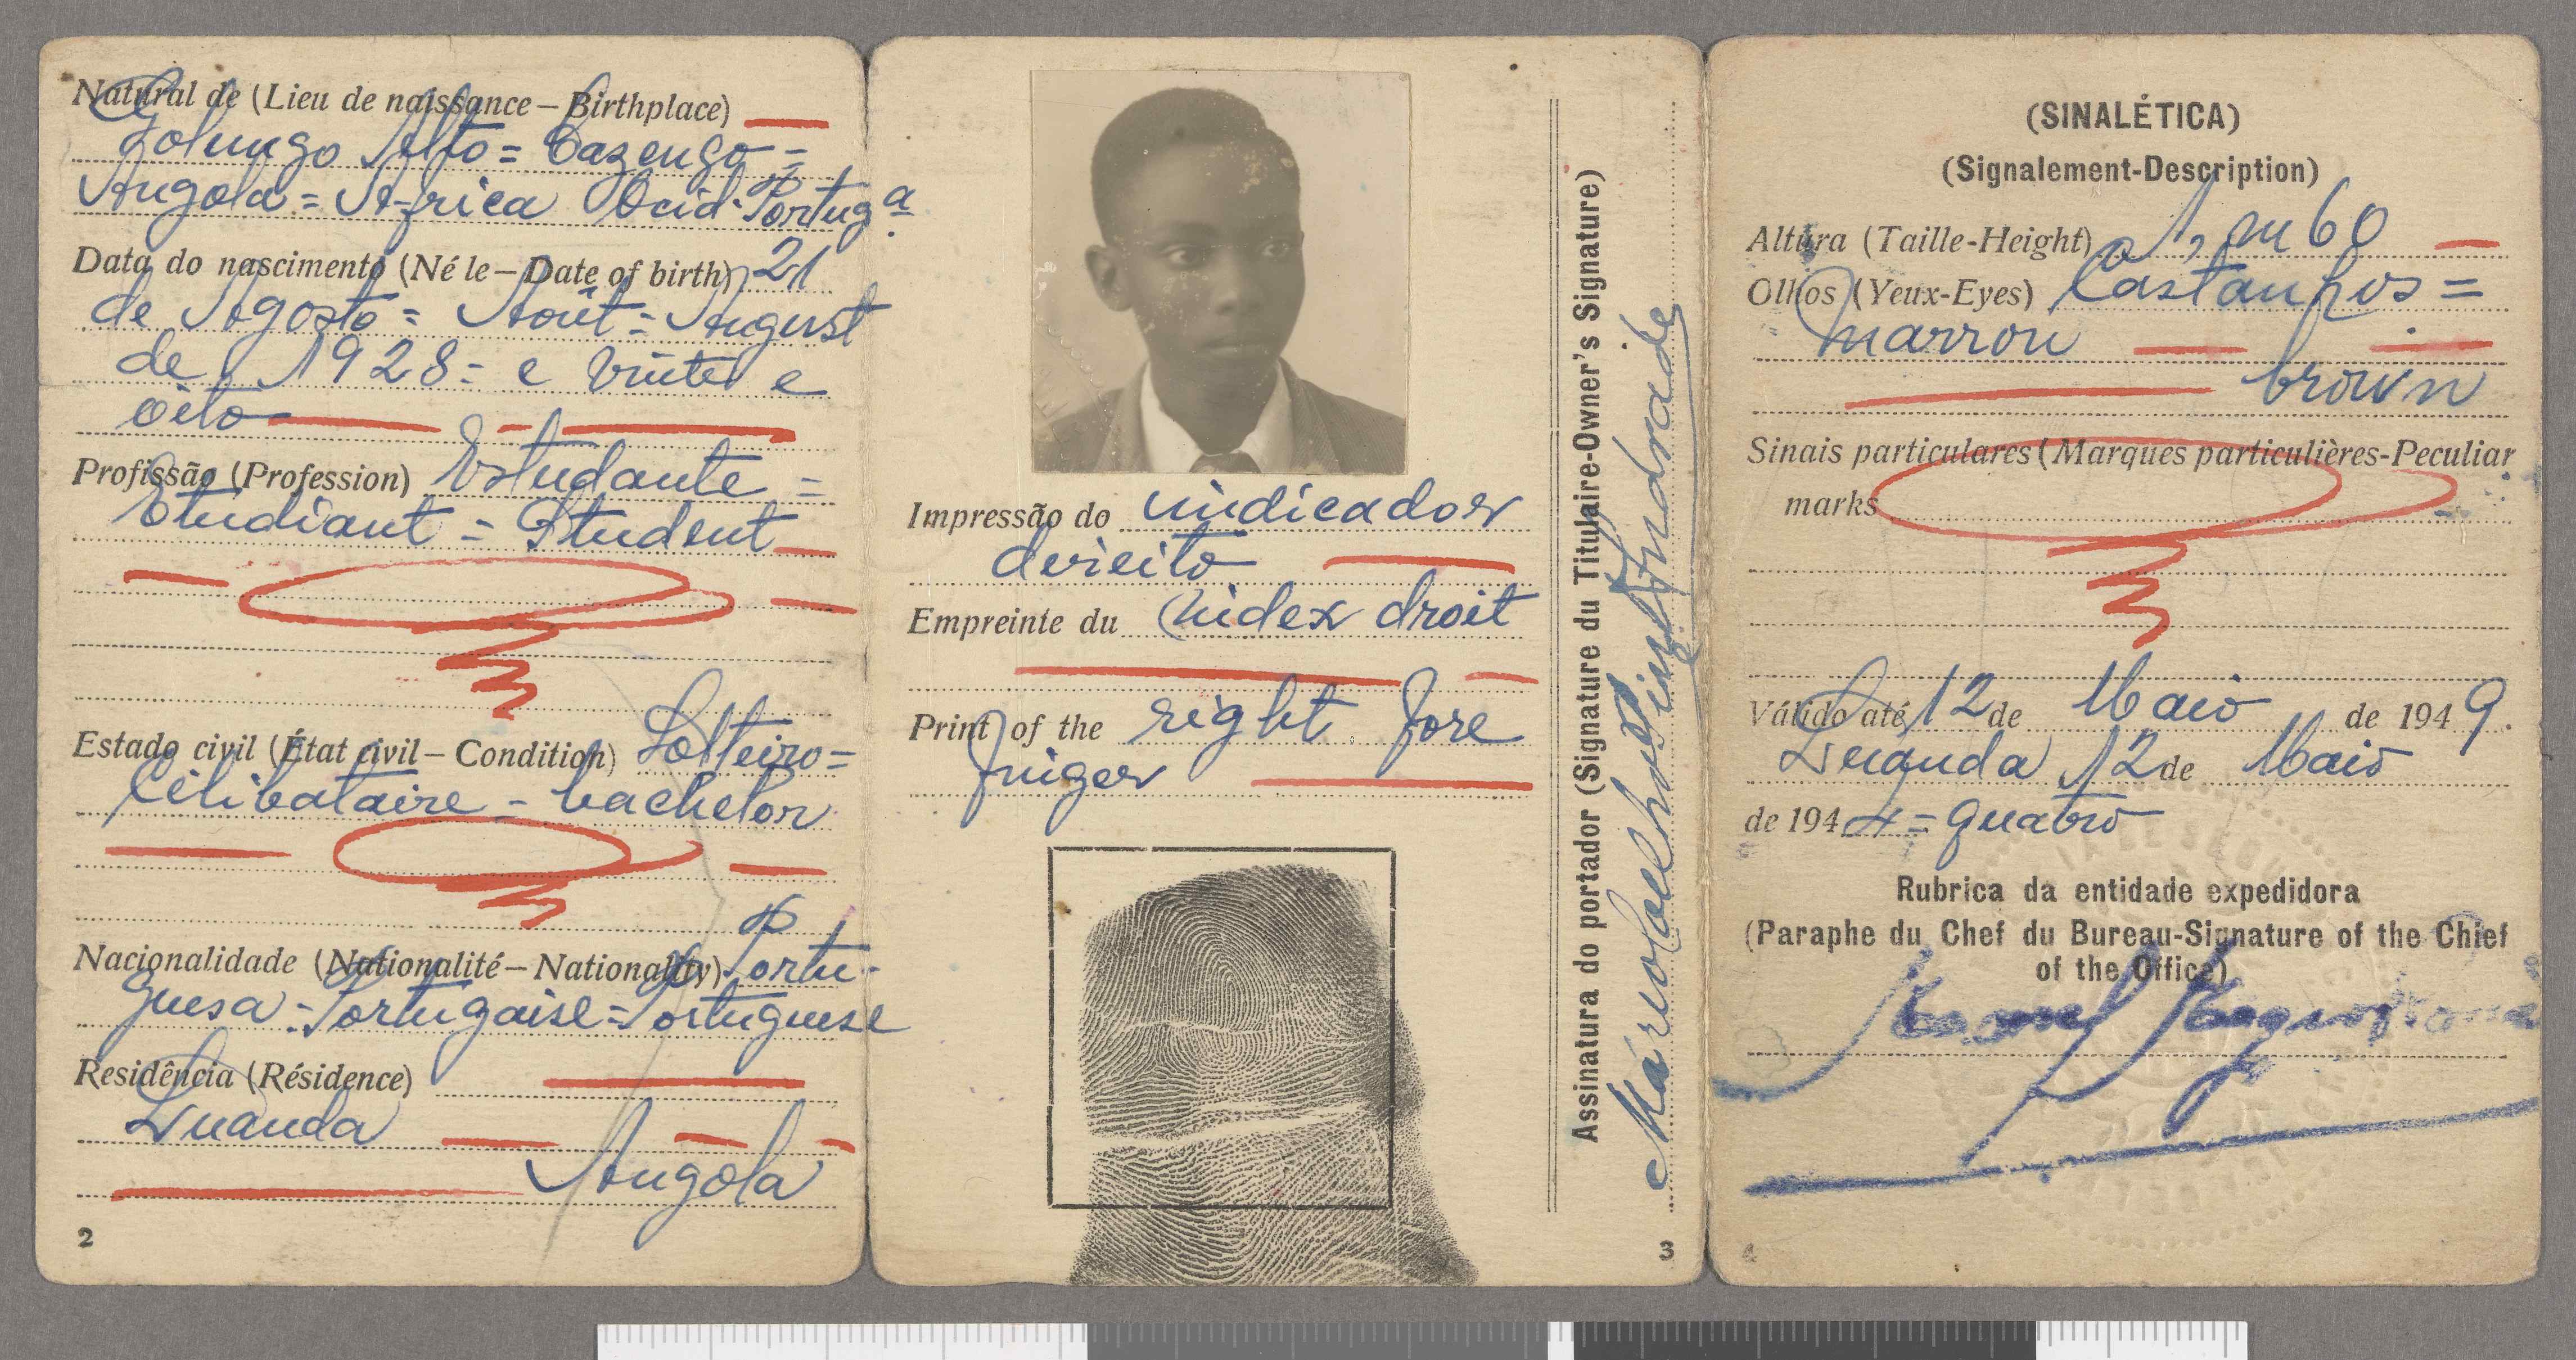 Natural de (Lieu de naissance – Birthplace)
Golungo Alto = Cazengo =
Angola = Africa Ocid. Portug.ª
Data do nascimento (Né le – Date of birth) 21
de Agosto = Août = August
de 1928 = e vinte e
oito
Profissão (Profession) Estudante =
Etudiant = Student
Estado civil (État civil – Condition) Solteiro =
Célibataire = bachelor
Nacionalidade (Nationalité – Nationality) Portu-
guesa = Portugaise = Portuguese
Residência (Résidence)
Luanda
Angola
2
Impressão do indicador
direito
Empreinte du index droit
Print of the right fore
finger
Assinatura do portador (Signature du Titulaire-Owner's Signature)
Mário Coelho Pinto Andrade
3
(SINALÉTICA)
(Signalement-Description)
Altura (Taille-Height) 1,m60
Olhos (Yeux-Eyes) Castanhos =
marron
brown
Sinais particulares (Marques particulières-Peculiar
marks
Válido até 12 de Maio de 1949.
Luanda 12 de Maio
de 1944 = quatro
Rubrica da entidade expedidora
(Paraphe du Chef du Bureau-Signature of the Chief
of the Office)
4